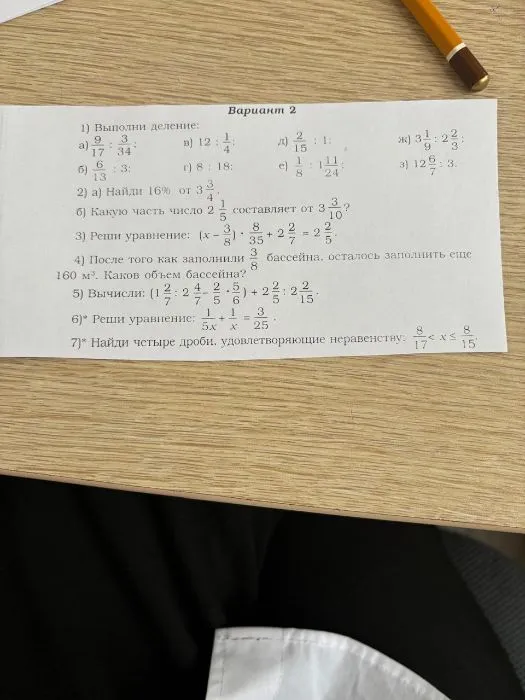 Вариант 2
1) Выполни деление:
а) 9/17 : 3/34; в) 12 : 1/4; д) 2/15 : 1; ж) 3 1/9 : 2 2/3;
б) 6/13 : 3; г) 8 : 18; е) 1/8 : 1 11/24; з) 12 6/7 : 3.
2) а) Найди 16% от 3 3/4.
б) Какую часть число 2 1/5 составляет от 3 3/10?
3) Реши уравнение: (x − 3/8) · 8/35 + 2 2/7 = 2 2/5.
4) После того как заполнили 3/8 бассейна, осталось заполнить еще
160 м³. Каков объем бассейна?
5) Вычисли: (1 2/7 : 2 4/7 − 2/5 · 5/6) + 2 2/5 : 2 2/15.
6)* Реши уравнение: 1/5x + 1/x = 3/25.
7)* Найди четыре дроби, удовлетворяющие неравенству: 8/17 < x ≤ 8/15.